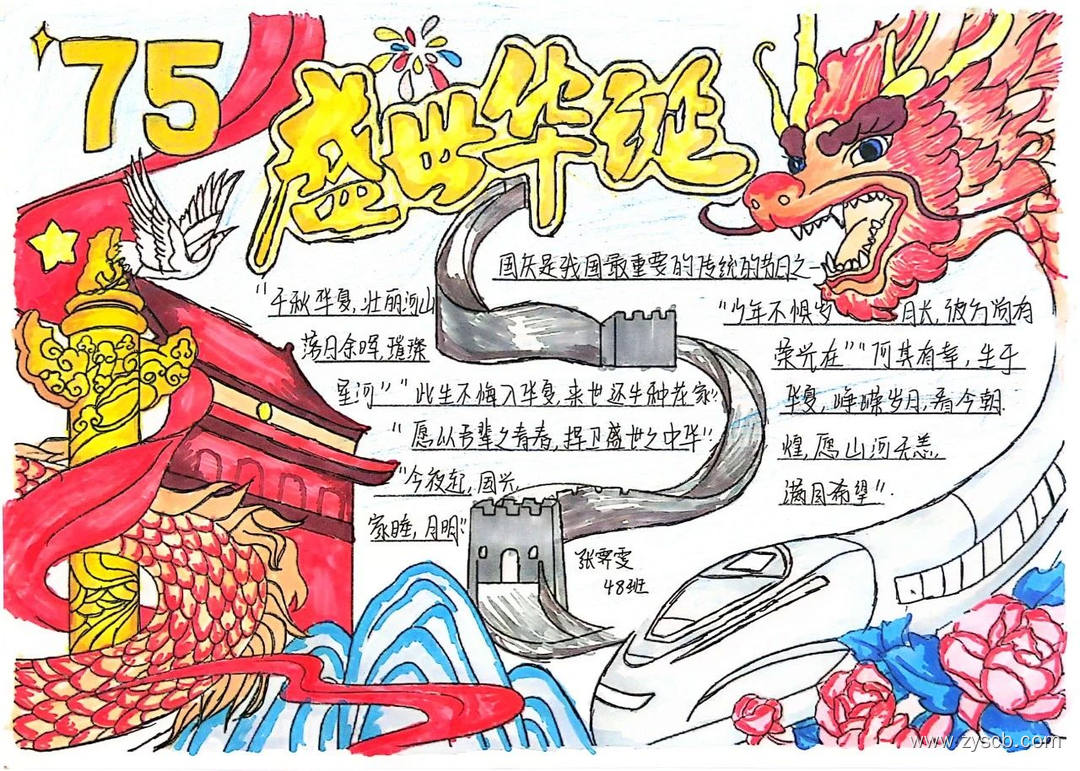 75
盛世华诞
国庆是我国最重要的传统的节日之一
"千秋华夏,壮丽河山
落日余晖,璀璨
星河""此生不悔入华夏,来世还生种花家"
"愿以吾辈之青春,捍卫盛世之中华"
"今夜起,国兴,
家睡,月明"
"少年不惧岁月长,彼方尚有
荣光在""何其有幸,生于
华夏,峥嵘岁月,看今朝
煌,愿山河无恙,
满园希望".
张霁雯
48班
www.zyscb.com